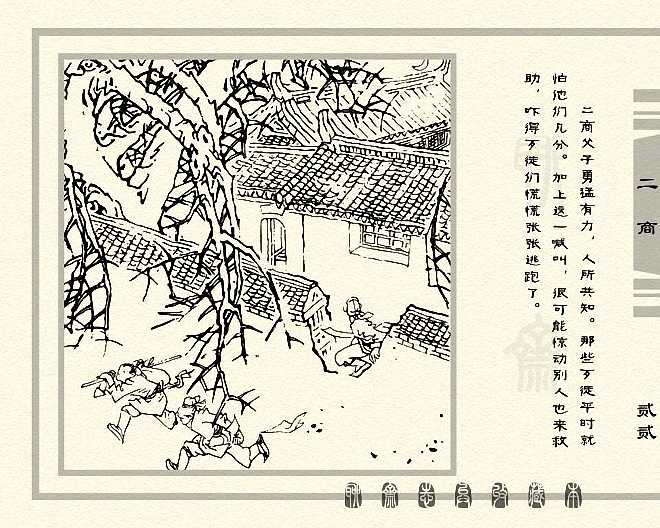 二商父子勇猛有力，人所共知。那些歹徒平时就
怕他们几分。加上这一喊叫，很可能惊动别人也来救
助，吓得歹徒们慌慌张张逃跑了。
二商
贰贰
聊斋志异收藏本